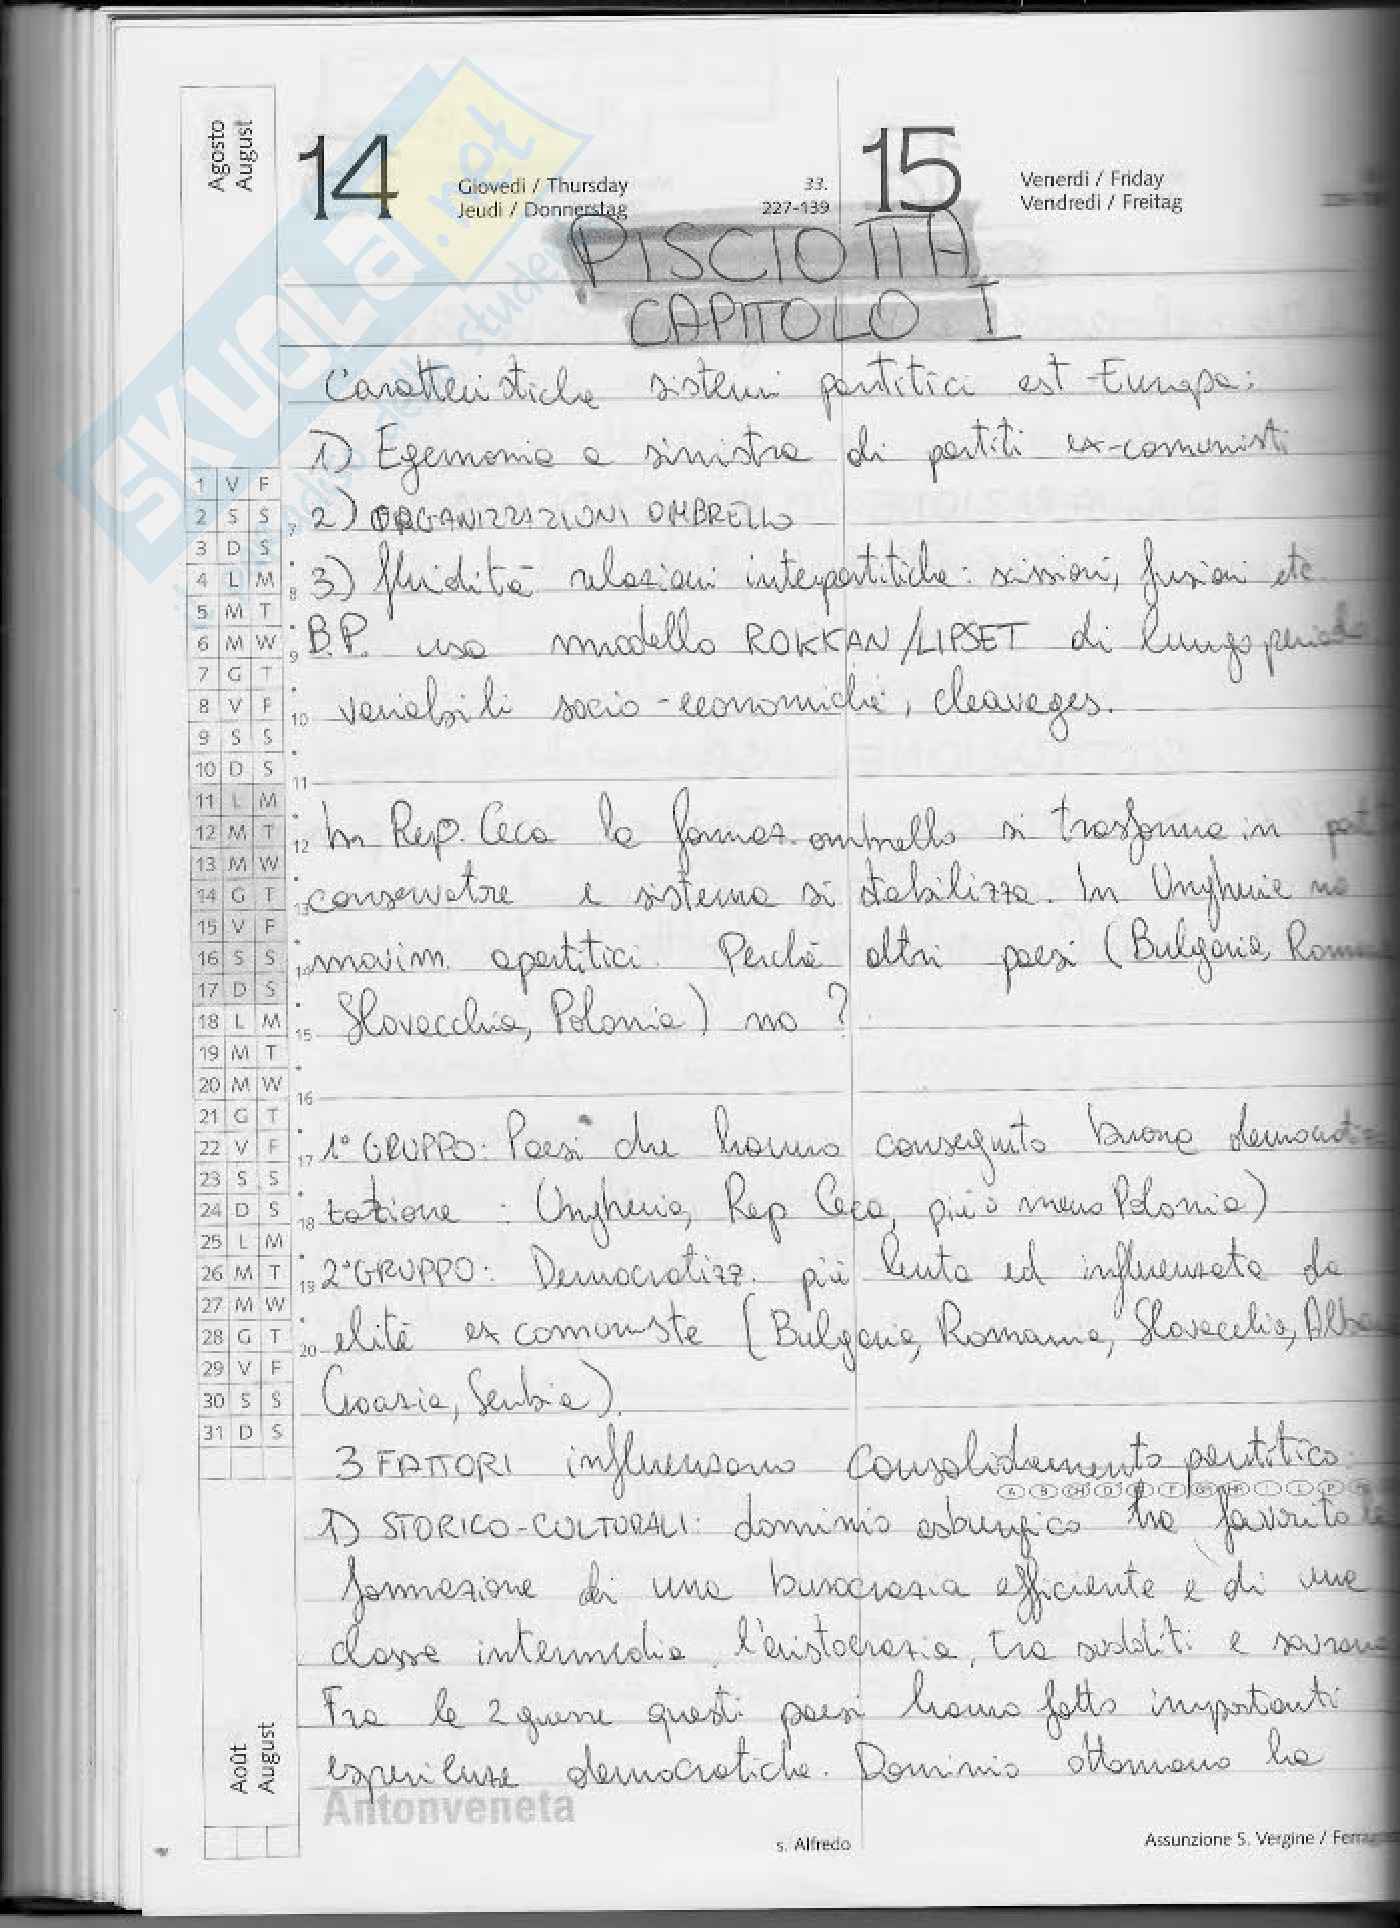 Agosto
August
14
Giovedì / Thursday
Jeudi / Donnerstag
33.
227-139
15
Venerdì / Friday
Vendredi / Freitag
SKUOLA.net
PISCIOTTA
CAPITOLO I
Caratteristiche sistemi partitici est-Europa:
1) Egemonia a sinistra di partiti ex-comunisti
2) ORGANIZZAZIONI OMBRELLO
3) fluidità relazioni interpartitiche: scissioni, fusioni etc.
B.P. usa modello ROKKAN/LIPSET di lungo periodo
variabili socio-economiche, cleavages.
In Rep. Ceca la formaz. ombrello si trasforma in
conservatore e sistema si stabilizza. In Ungheria no
movim. apartitici. Perché altri paesi (Bulgaria,
Slovacchia, Polonia) no?
1° GRUPPO: Paesi che hanno conseguito buona
: Ungheria, Rep Ceca, più o meno Polonia)
2° GRUPPO: Democratizz. più lenta ed influenzata da
elité ex comuniste (Bulgaria, Romania, Slovacchia,
Croazia, Serbia).
3 FATTORI influenzano consolidamento partitico:
1) STORICO-CULTURALI: dominio asburgico ha favorito
formazione di una burocrazia efficiente e di una
classe intermedia, l'aristocrazia, tra sudditi e
Fra le 2 guerre questi paesi hanno fatto importanti
esperienze democratiche. Dominio ottomano ha
1 V F
2 S S
3 D S
4 L M
5 M T
6 M W
7 G T
8 V F
9 S S
10 D S
11 L M
12 M T
13 M W
14 G T
15 V F
16 S S
17 D S
18 L M
19 M T
20 M W
21 G T
22 V F
23 S S
24 D S
25 L M
26 M T
27 M W
28 G T
29 V F
30 S S
31 D S
7
8
9
10
11
12
13
14
15
16
17
18
19
20
Août
August
Antonveneta
s. Alfredo
Assunzione S. Vergine /